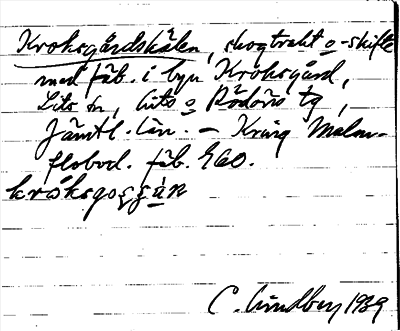 Kroksgårdskälen, skogtrakt o -skifte
med fäb. i byn Kroksgård,
Lits sn, Lits o Rödöns tg,
Jämtl. län. – Kring Malm-
flobod. fäb. 460.
króksgo
C. Lindberg 1939